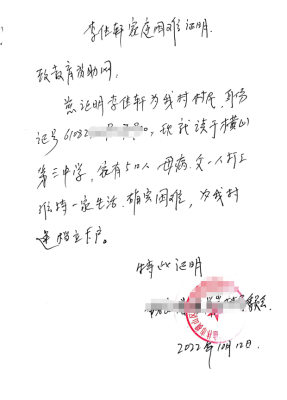 李佳轩家庭困难证明.
致教育资助网:
兹证明李佳轩为我村村民,身份
证号61082 0,现就读于横山
第三中学,家有5口人,母病,父一人打工
维持一家生活.确实困难,为我村
建档立卡户。
特此证明
委会
2022年10月12日.